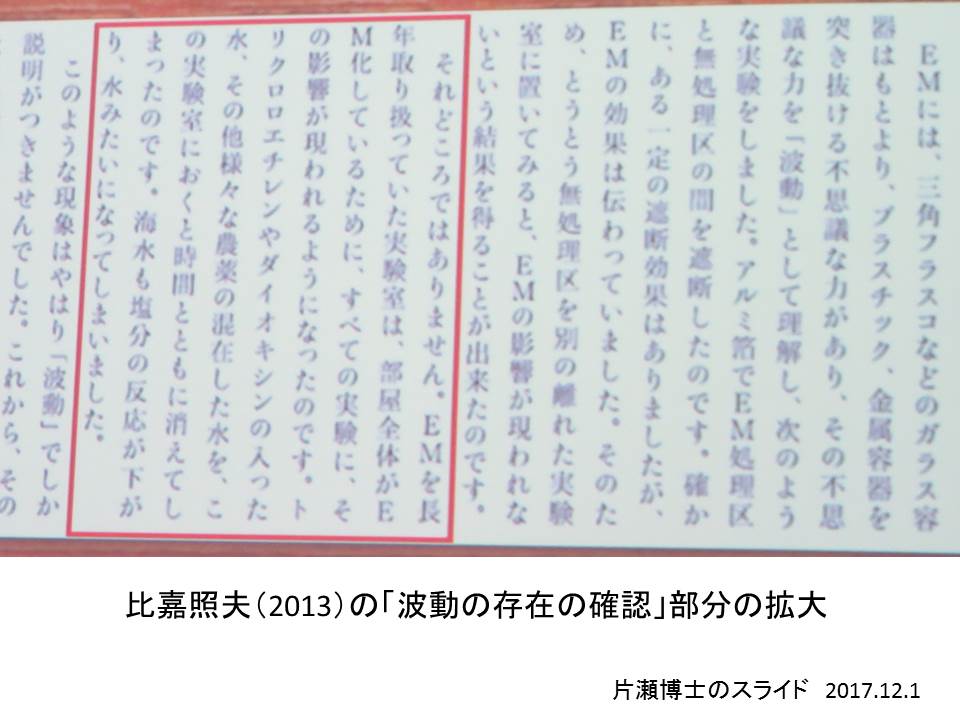 EMには、三角フラスコなどのガラス容
器はもとより、プラスチック、金属容器を
突き抜ける不思議な力があり、その不思
議な力を「波動」として理解し、次のよう
な実験をしました。アルミ箔でEM処理区
と無処理区の間を遮断したのです。確か
に、ある一定の遮断効果はありましたが、
EMの効果は伝わっていました。そのた
め、とうとう無処理区を別の離れた実験
室に置いてみると、EMの影響が現われな
いという結果を得ることが出来たのです。
それどころではありません。EMを長
年取り扱っていた実験室は、部屋全体がE
M化しているために、すべての実験に、そ
の影響が現われるようになったのです。ト
リクロロエチレンやダイオキシンの入った
水、その他様々な農薬の混在した水を、こ
の実験室におくと時間とともに消えてし
まったのです。海水も塩分の反応が下が
り、水みたいになってしまいました。
このような現象はやはり「波動」でしか
説明がつきませんでした。これから、その
比嘉照夫(2013)の「波動の存在の確認」部分の拡大
片瀬博士のスライド 2017.12.1